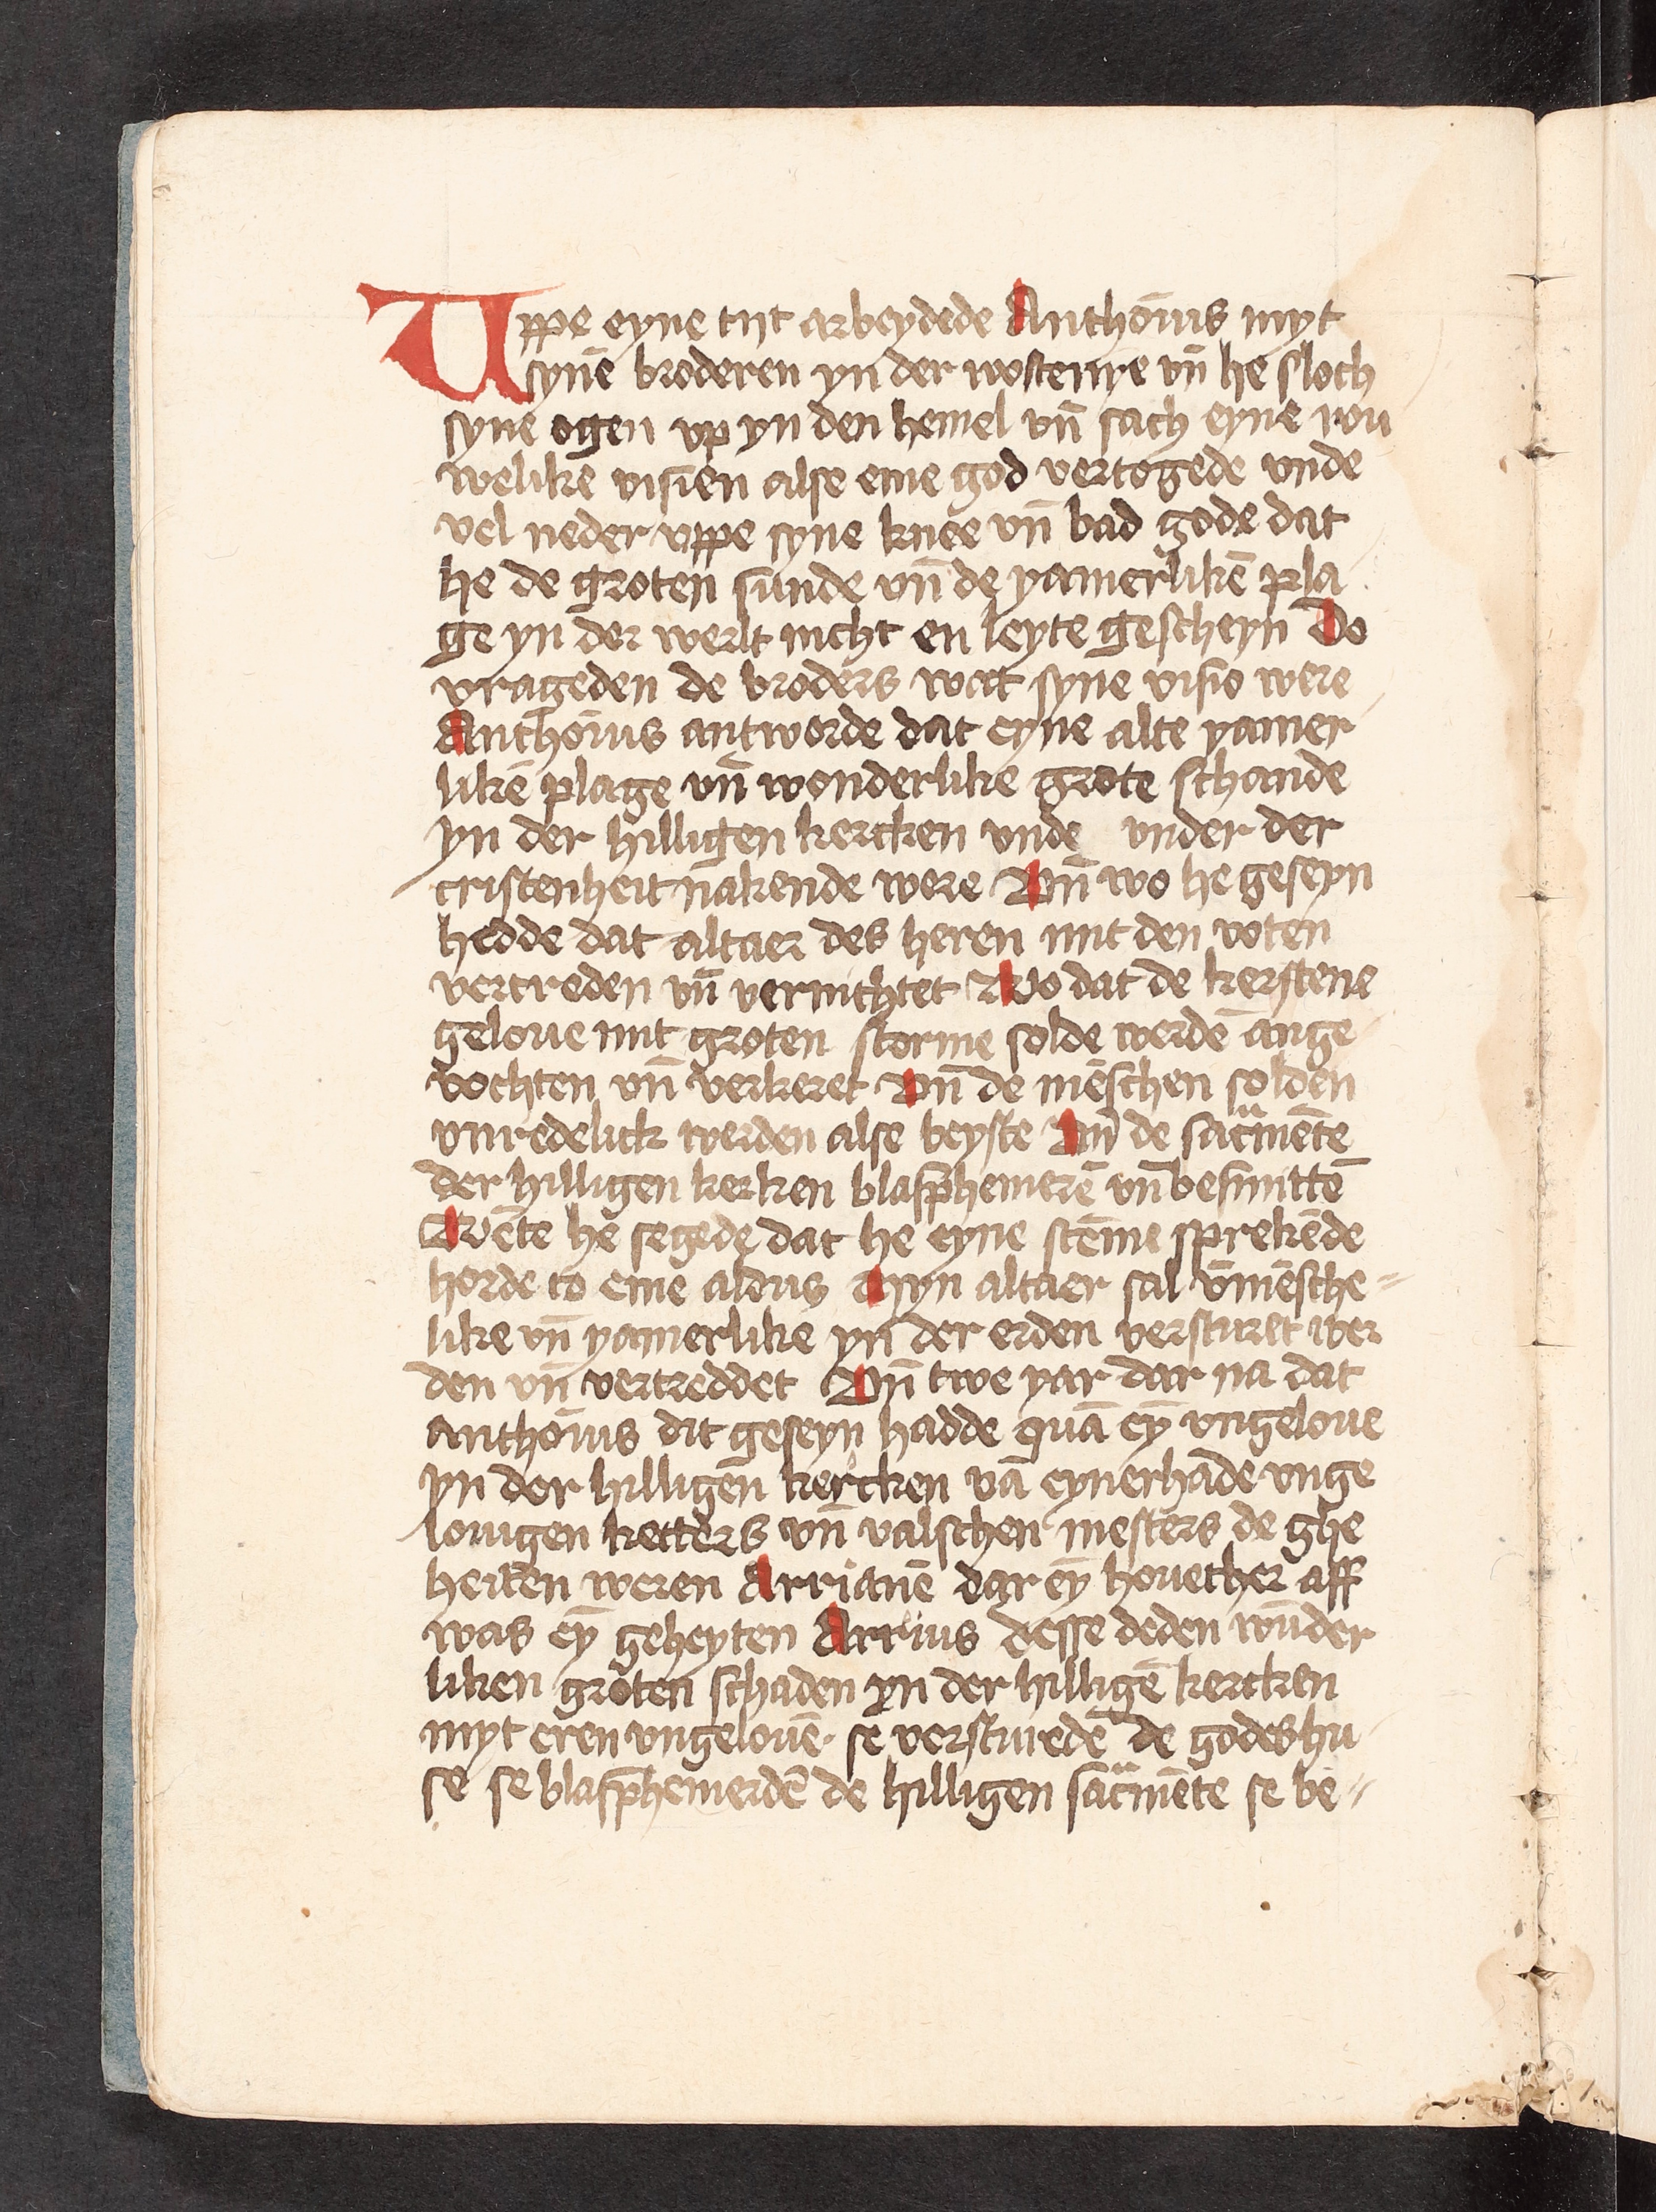 Uppe eyne tijt arbeydede Anthoīus myt
synē broderen yn der wostenye vn̄ he sloch
syne ogen vp yn den hemel vn̄ sach eyne rou
welike visien alse eme god vertogede vnde
vel neder vppe syne knee vn̄ bad gode dat
he de groten sunde vn̄ de yamerlikē pla
ge yn der werlt nicht en leyte gescheyn Do
vrageden de broders wat syne visio were
Anthoīus antworde dat eyne alte yamer
likē plage vn̄ wonderlike grote schande
yn der hilligen kercken vnde vnder der
cristenheit nakende were Vn̄ wo he geseyn
hedde dat altaer des heren mit den voten
vertreden vn̄ vernichtet Wo dat de kerstene
geloue mit groten storme solde werdē ange
vochten vn̄ verkeret Vn̄ de mēschen solden
vnredelick werden alse beyste Vn̄ de sacͣmēte
der hilligen kerken blasphemerē vn̄ besmittē
Wēte he segede dat he eyne stēme sprekēde
horde to eme aldus Myn altaer sal vn̄mēsche=
like vn̄ yamerlike yn der erden versturet wer
den vn̄ vertreddet Vn̄ twe yar dar na dat
anthoīus dit geseyn hadde quā eȳ vngeloue
yn der hilligen kercken vā eynerhāde vnge
louigen ketters vn̄ valschen mesters de ghe
heiten weren Arrianē dar eȳ houether aff
was eȳ geheyten Arrius desse deden wūder
liken groten schaden yn der hilligē kercken
myt eren vngelouē· se versturedē de godeshu
se se blasphemerdē de hilligen sacͣmēte se be=